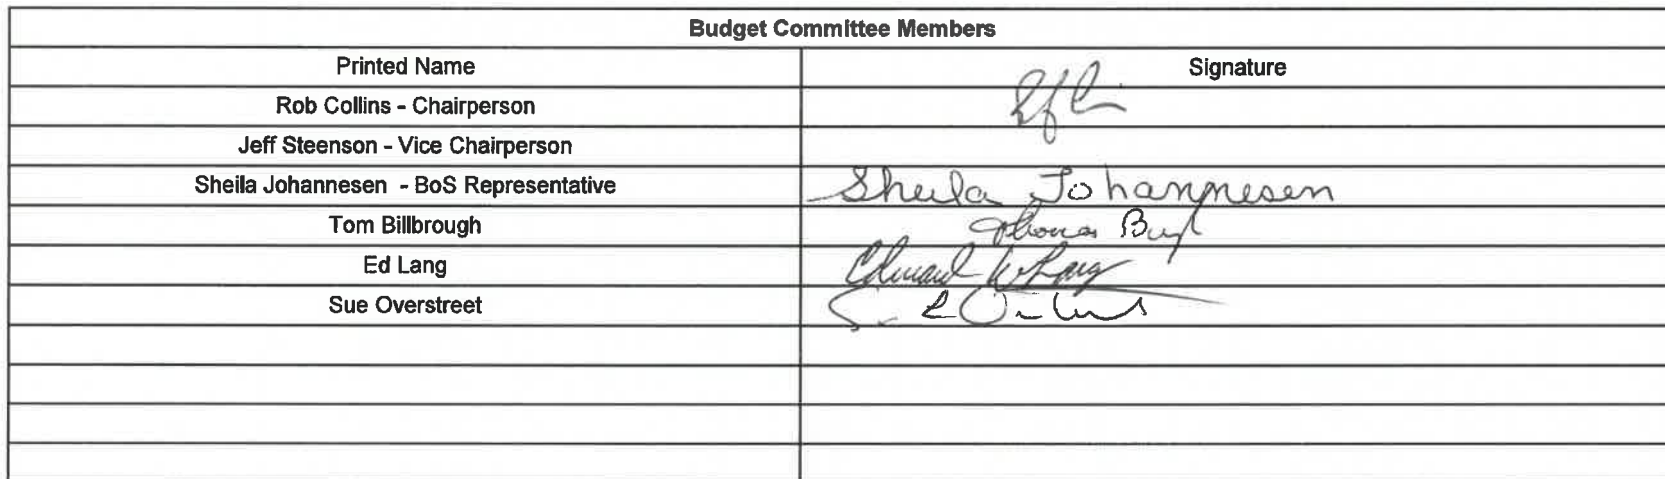 Budget Committee Members
Printed Name Signature
Rob Collins - Chairperson
Jeff Steenson - Vice Chairperson
Sheila Johannesen - BoS Representative Sheila Johannesen
Tom Billbrough Thomas
Ed Lang Edward W Lang
Sue Overstreet